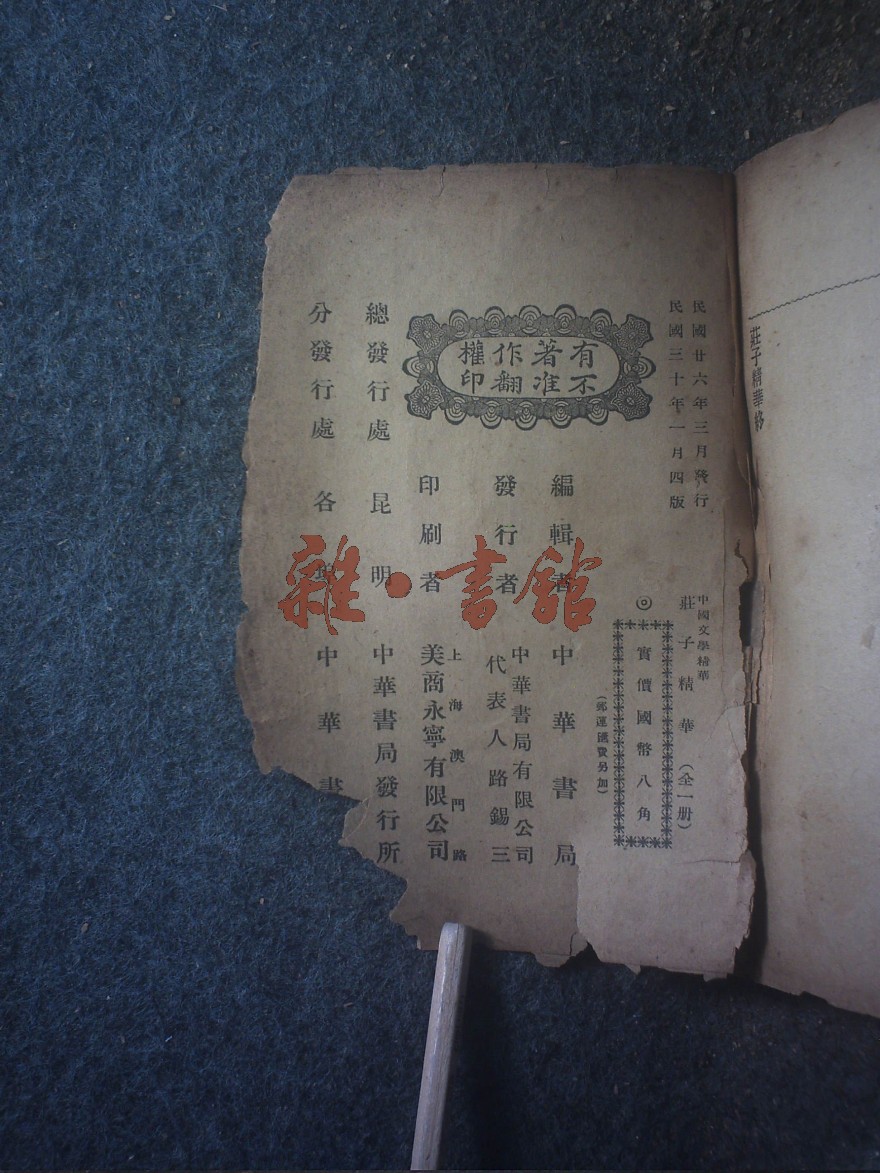 莊子精華終
民國廿六年三月發行
民國三十年一月四版
中國文學精華
莊子精華（全一册）
◎實價國幣八角
（郵運匯費另加）
有著作權
不准翻印
編輯者 中華書局
發行者 中華書局有限公司
代表人路錫三
印刷者 上海澳門路
美商永寧有限公司
總發行處 昆明 中華書局發行所
分發行處 各埠 中華書
雜·書館